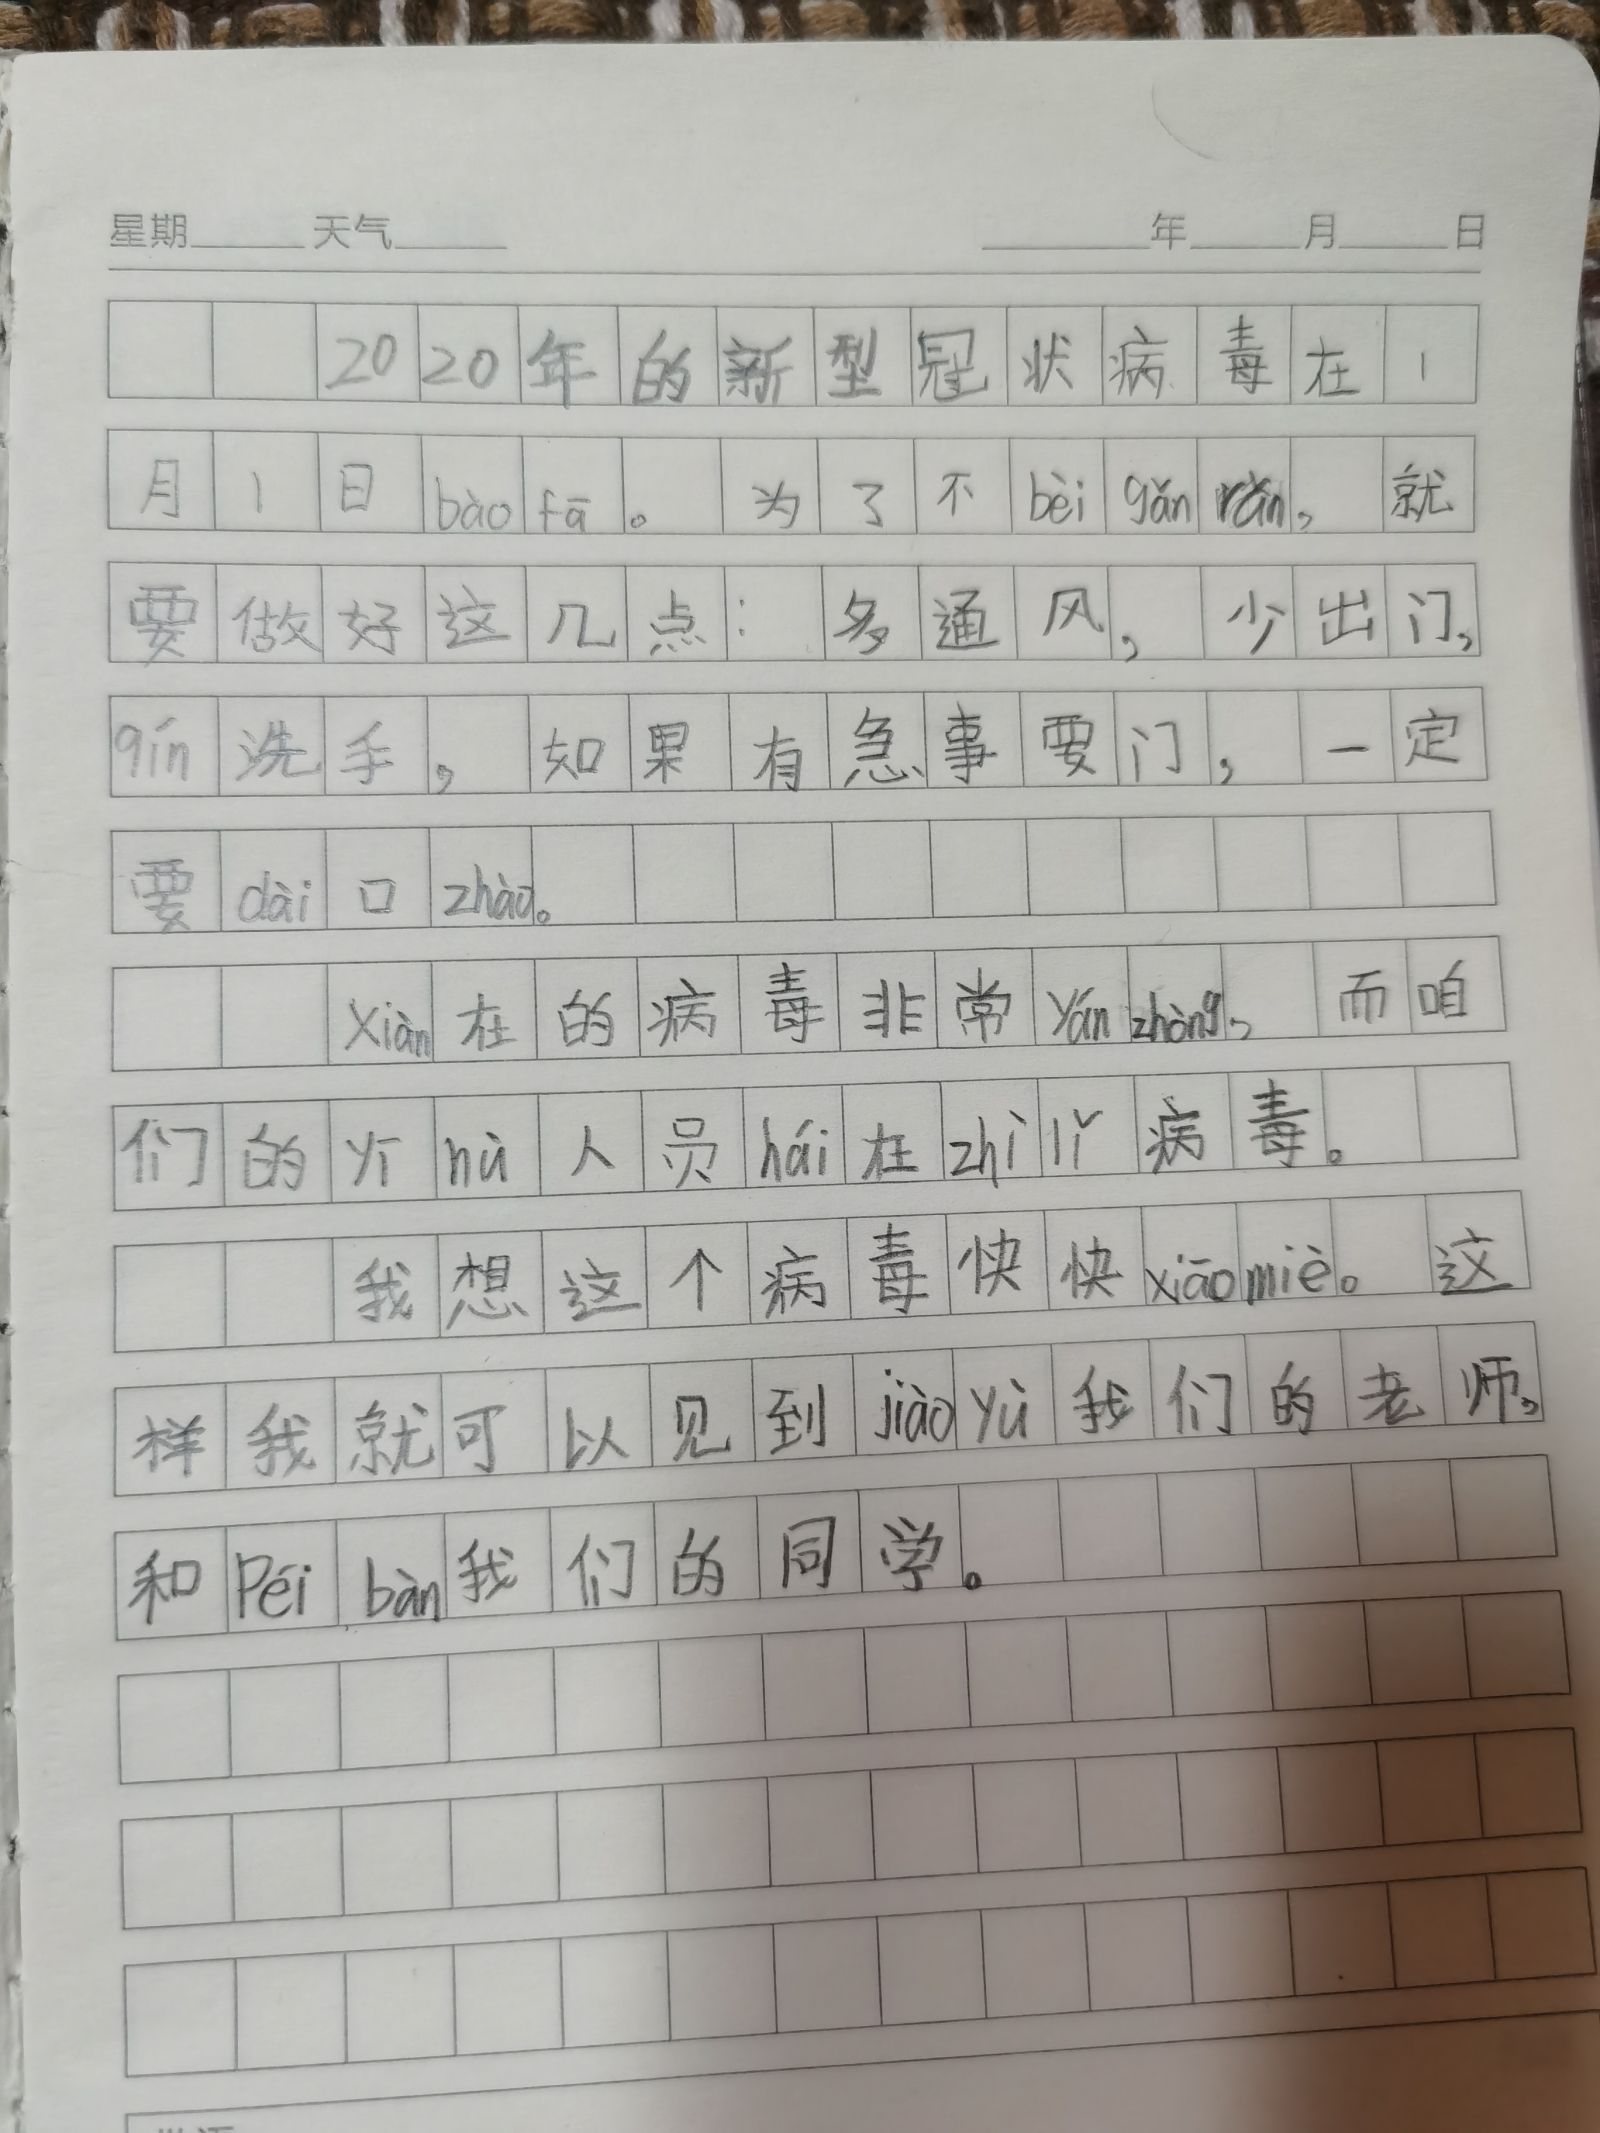 星期 天气 年 月 日
2020年的新型冠状病毒在1
月1日bàofā。为了不bèi gǎn rǎn,就
要做好这几点:多通风,少出门,
qín洗手,如果有急事要门,一定
要dài口zhào。
xiàn在的病毒非常yán zhòng,而咱
们的yī hù人员hái在zhì lǐ病毒。
我想这个病毒快快xiāo miè。这
样我就可以见到jiào yù我们的老师,
和Péi bàn我们的同学。